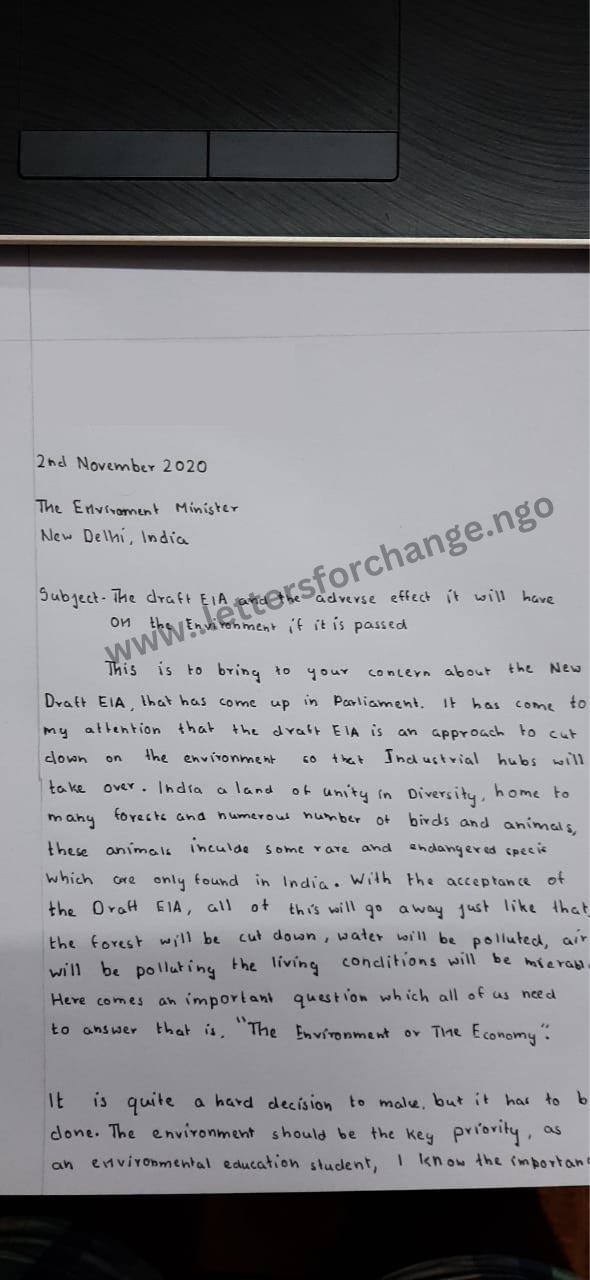 2nd November 2020
The Enviroment Minister
New Delhi, India
Subject- The draft EIA and the adverse effect it will have
on the Environment if it is passed
www.lettersforchange.ngo
This is to bring to your concern about the New
Draft EIA, that has come up in Parliament. It has come to
my attention that the draft EIA is an approach to cut
down on the environment so that Industrial hubs will
take over. India a land of unity in Diversity, home to
many forests and numerous number of birds and animals,
these animals inculde some rare and endangered specis
which are only found in India. With the acceptance of
the Draft EIA, all of this will go away just like that,
the forest will be cut down, water will be polluted, air
will be polluting the living conditions will be
Here comes an important question which all of us need
to answer that is, "The Environment or The Economy".
It is quite a hard decision to make, but it has to b
done. The environment should be the key priority, as
an environmental education student, I know the importan